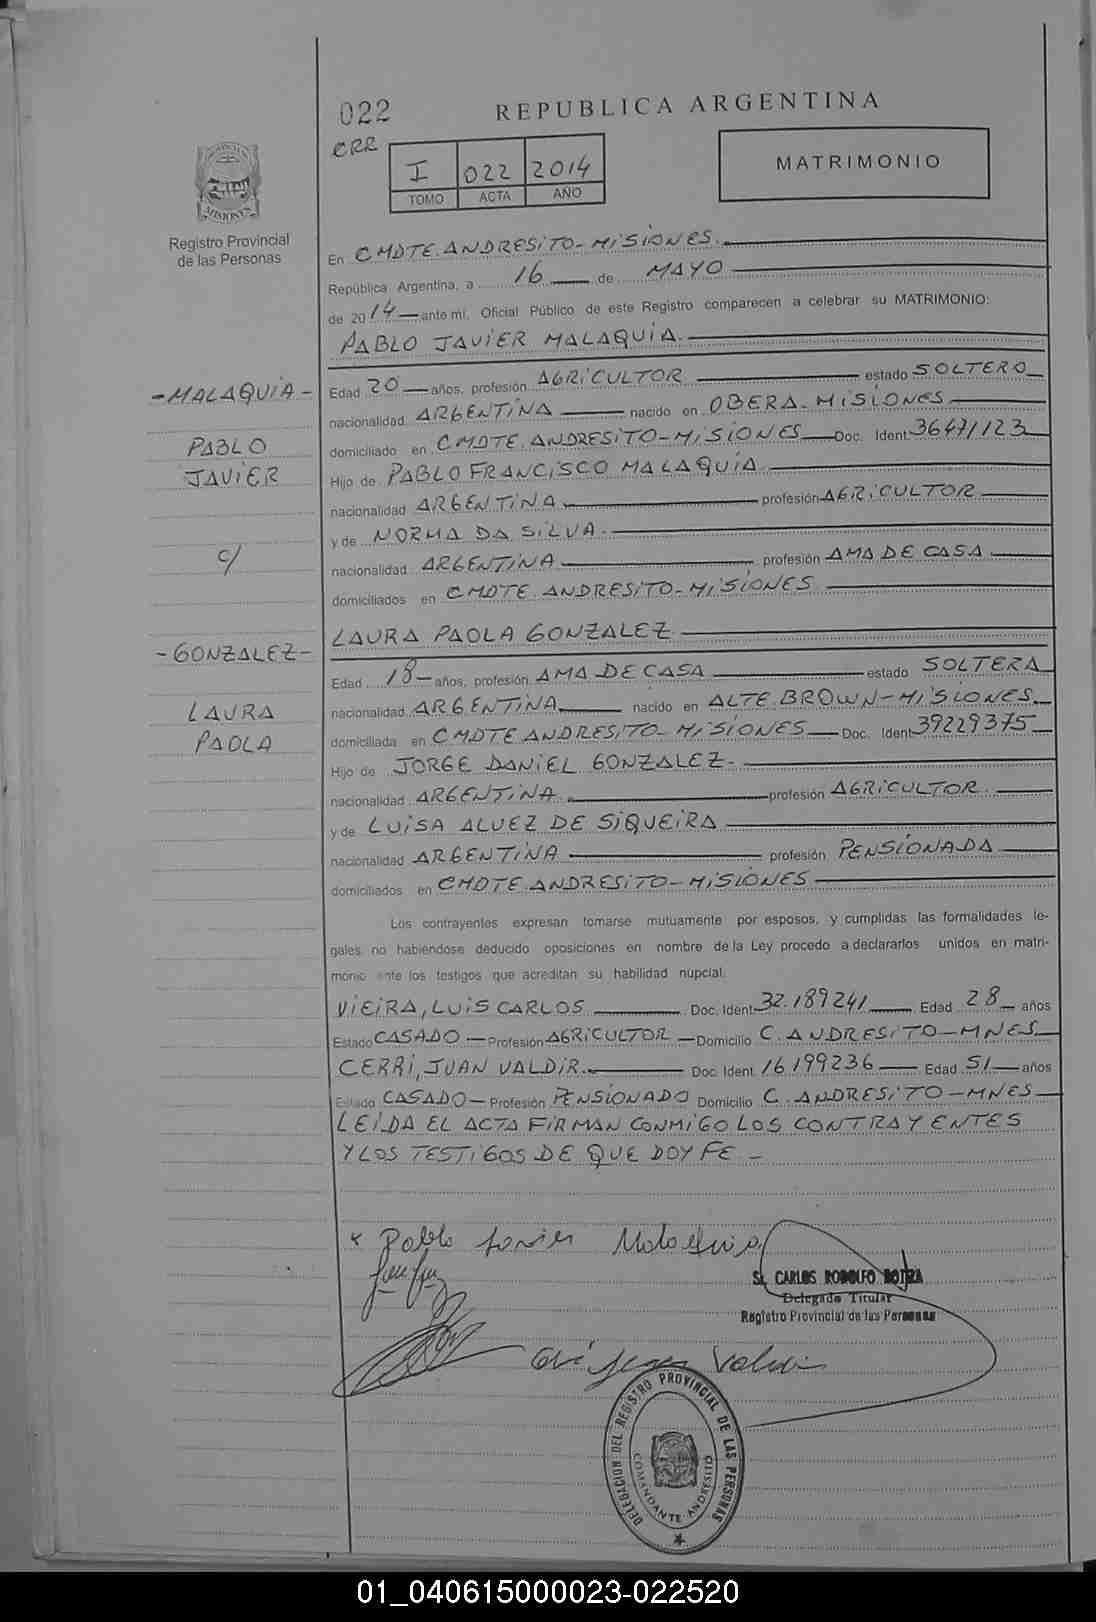 022
REPUBLICA ARGENTINA
CRR
I 022 2014
TOMO ACTA AÑO
MATRIMONIO
MISIONES
Registro Provincial
de las Personas
En CMDTE. ANDRESITO - MISIONES.
República Argentina, a 16 de MAYO
de 2014 ante mí, Oficial Público de este Registro comparecen a celebrar su MATRIMONIO:
PABLO JAVIER MALAQUIA.
- MALAQUIA -
Edad 20 años, profesión AGRICULTOR estado SOLTERO
nacionalidad ARGENTINA nacido en OBERA - MISIONES
PABLO
domiciliado en CMDTE. ANDRESITO - MISIONES Doc. Ident 36471123
JAVIER
Hijo de PABLO FRANCISCO MALAQUIA
nacionalidad ARGENTINA profesión AGRICULTOR
y de NORMA DA SILVA.
c/
nacionalidad ARGENTINA profesión AMA DE CASA
domiciliados en CMDTE. ANDRESITO - MISIONES
LAURA PAOLA GONZALEZ
- GONZALEZ -
Edad 18 años, profesión AMA DE CASA estado SOLTERA
LAURA
nacionalidad ARGENTINA nacido en ALTE. BROWN - MISIONES
PAOLA
domiciliada en CMDTE ANDRESITO - MISIONES Doc. Ident 39229375
Hijo de JORGE DANIEL GONZALEZ -
nacionalidad ARGENTINA profesión AGRICULTOR
y de LUISA ALVEZ DE SIQUEIRA
nacionalidad ARGENTINA profesión PENSIONADA
domiciliados en CMDTE. ANDRESITO - MISIONES
Los contrayentes expresan tomarse mutuamente por esposos, y cumplidas las formalidades le-
gales, no habiéndose deducido oposiciones en nombre de la Ley procedo a declararlos unidos en matri-
monio ante los testigos que acreditan su habilidad nupcial.
VIEIRA, LUIS CARLOS Doc. Ident 32.189241 Edad 28 años
Estado CASADO Profesión AGRICULTOR Domicilio C. ANDRESITO - MNES
CERRI, JUAN VALDIR. Doc. Ident. 16199236 Edad 51 años
Estado CASADO Profesión PENSIONADO Domicilio C. ANDRESITO - MNES
LEIDA EL ACTA FIRMAN CONMIGO LOS CONTRAYENTES
Y LOS TESTIGOS DE QUE DOY FE -
x Pablo Javier Malaquia
Sr. CARLOS RODOLFO
Delegado Titular
Registro Provincial de las Personas
Juan Valdir
DELEGACION DEL REGISTRO PROVINCIAL DE LAS PERSONAS
COMANDANTE ANDRESITO
01_040615000023-022520